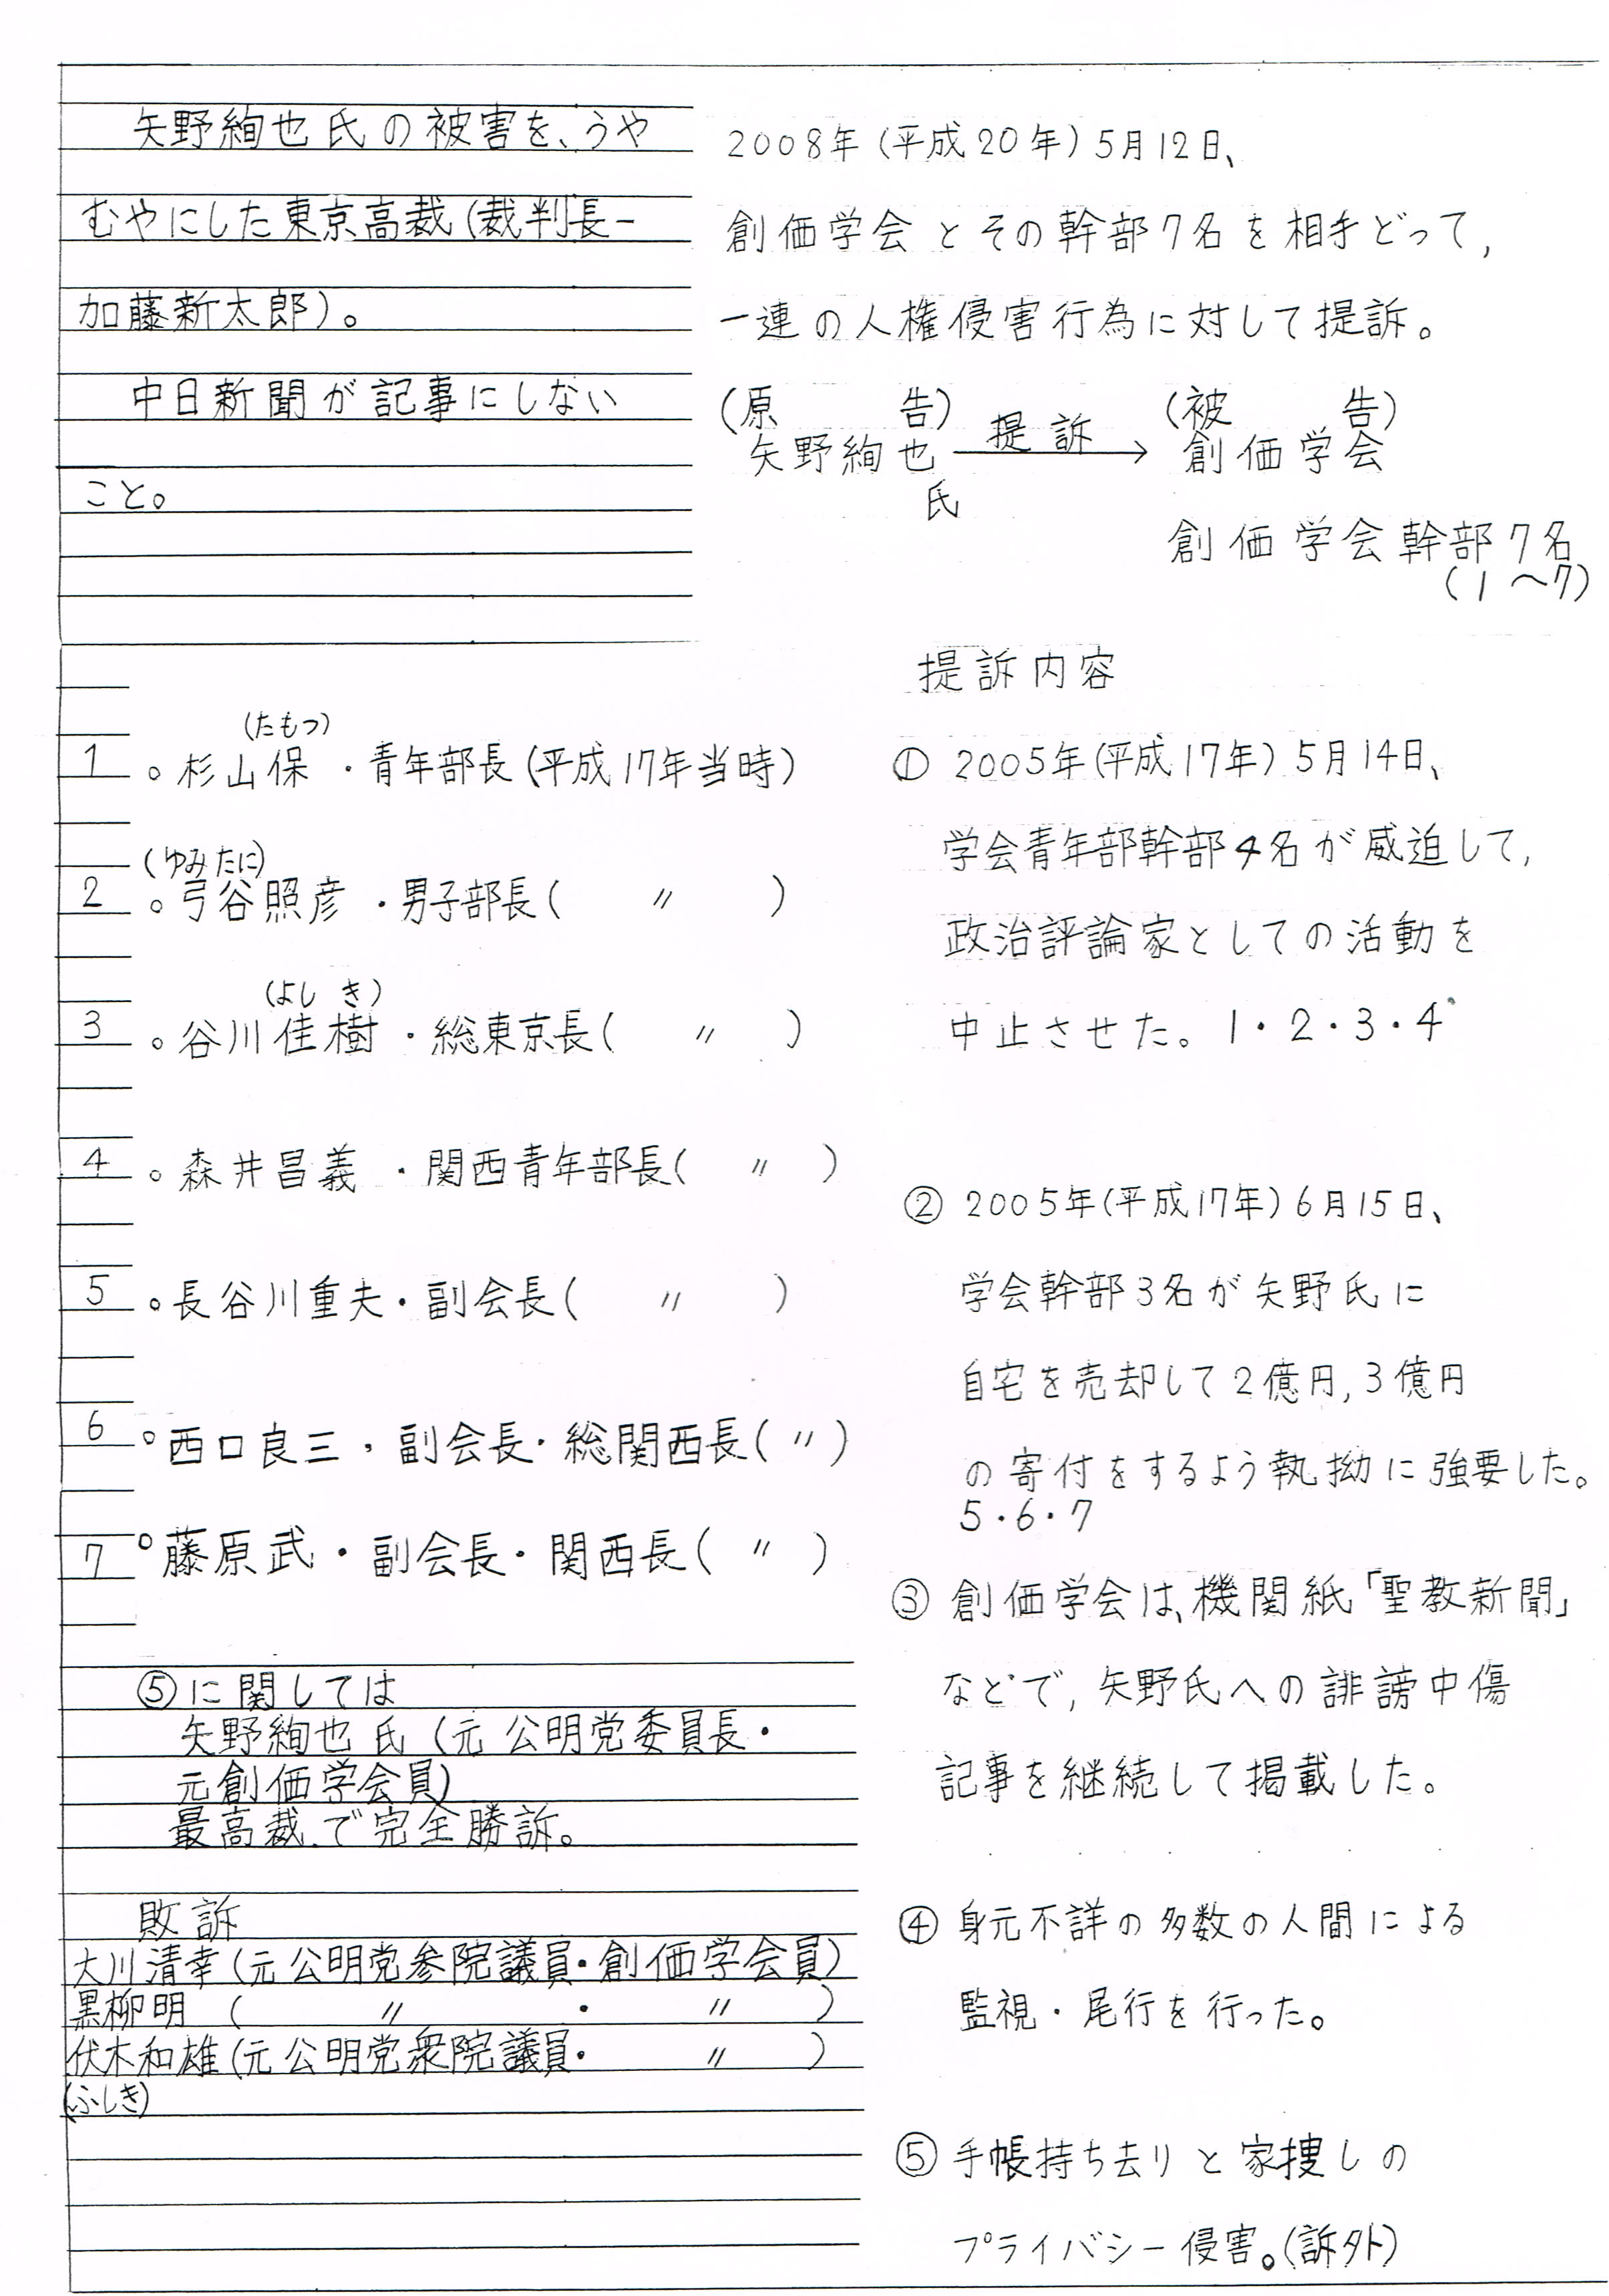 矢野絢也氏の被害を、うや
むやにした東京高裁(裁判長ー
加藤新太郎)。
中日新聞が記事にしない
こと。
2008年(平成20年)5月12日、
創価学会とその幹部7名を相手どって,
一連の人権侵害行為に対して提訴。
(原 告) 提訴 (被 告)
矢野絢也 → 創価学会
氏
創価学会幹部7名
(1〜7)
(たもつ)
1 。杉山保・青年部長(平成17年当時)
(ゆみたに)
2 。弓谷照彦・男子部長( 〃 )
(よしき)
3 。谷川佳樹・総東京長( 〃 )
4 。森井昌義・関西青年部長( 〃 )
5 。長谷川重夫・副会長( 〃 )
6 。西口良三・副会長・総関西長( 〃 )
7 。藤原武・副会長・関西長( 〃 )
⑤に関しては
矢野絢也氏(元公明党委員長・
元創価学会員)
最高裁で完全勝訴。
敗訴
大川清幸(元公明党参院議員・創価学会員)
黒柳明 ( 〃 ・ 〃 )
伏木和雄(元公明党衆院議員・ 〃 )
(ふしき)
提訴内容
① 2005年(平成17年)5月14日、
学会青年部幹部4名が威迫して,
政治評論家としての活動を
中止させた。1・2・3・4
② 2005年(平成17年)6月15日、
学会幹部3名が矢野氏に
自宅を売却して2億円,3億円
の寄付をするよう執拗に強要した。
5・6・7
③ 創価学会は、機関紙「聖教新聞」
などで,矢野氏への誹謗中傷
記事を継続して掲載した。
④ 身元不詳の多数の人間による
監視・尾行を行った。
⑤ 手帳持ち去りと家捜しの
プライバシー侵害。(訴外)